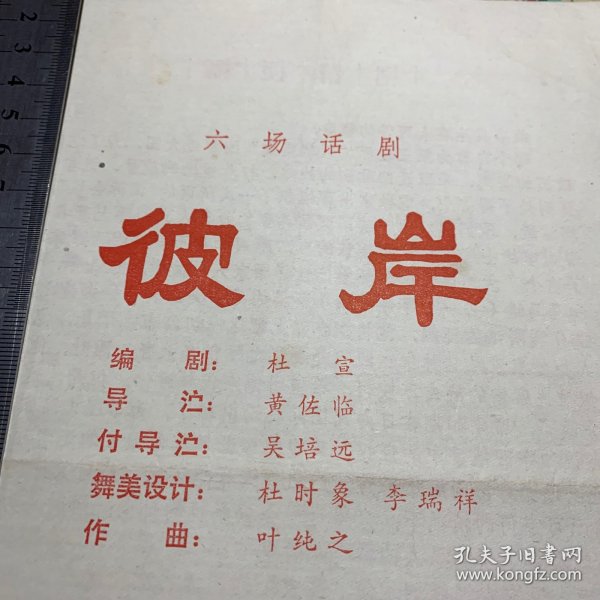 六场话剧
彼岸
编剧：杜宣
导𰛄：黄佐临
付导𰛄：吴培远
舞美设计：杜时象 李瑞祥
作曲：叶纯之
孔夫子旧书网
www.kongfz.com
2
3
4
5
6
7